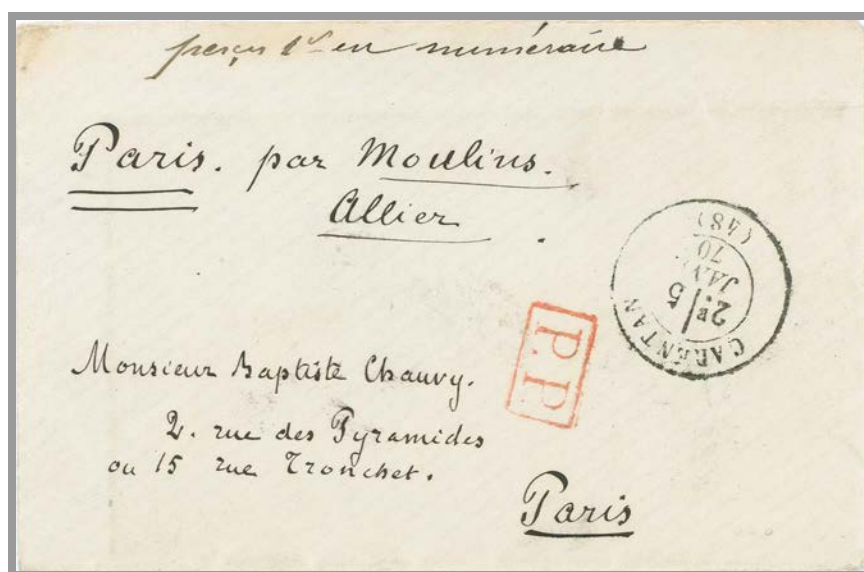 perçu 1f en numéraire
Paris. par Moulins.
Allier.
CARENTAN
2E / 5
JANV.
70
(48)
P.P.
Monsieur Baptiste Chauvy.
2. rue des Pyramides
ou 15 rue Tronchet.
Paris